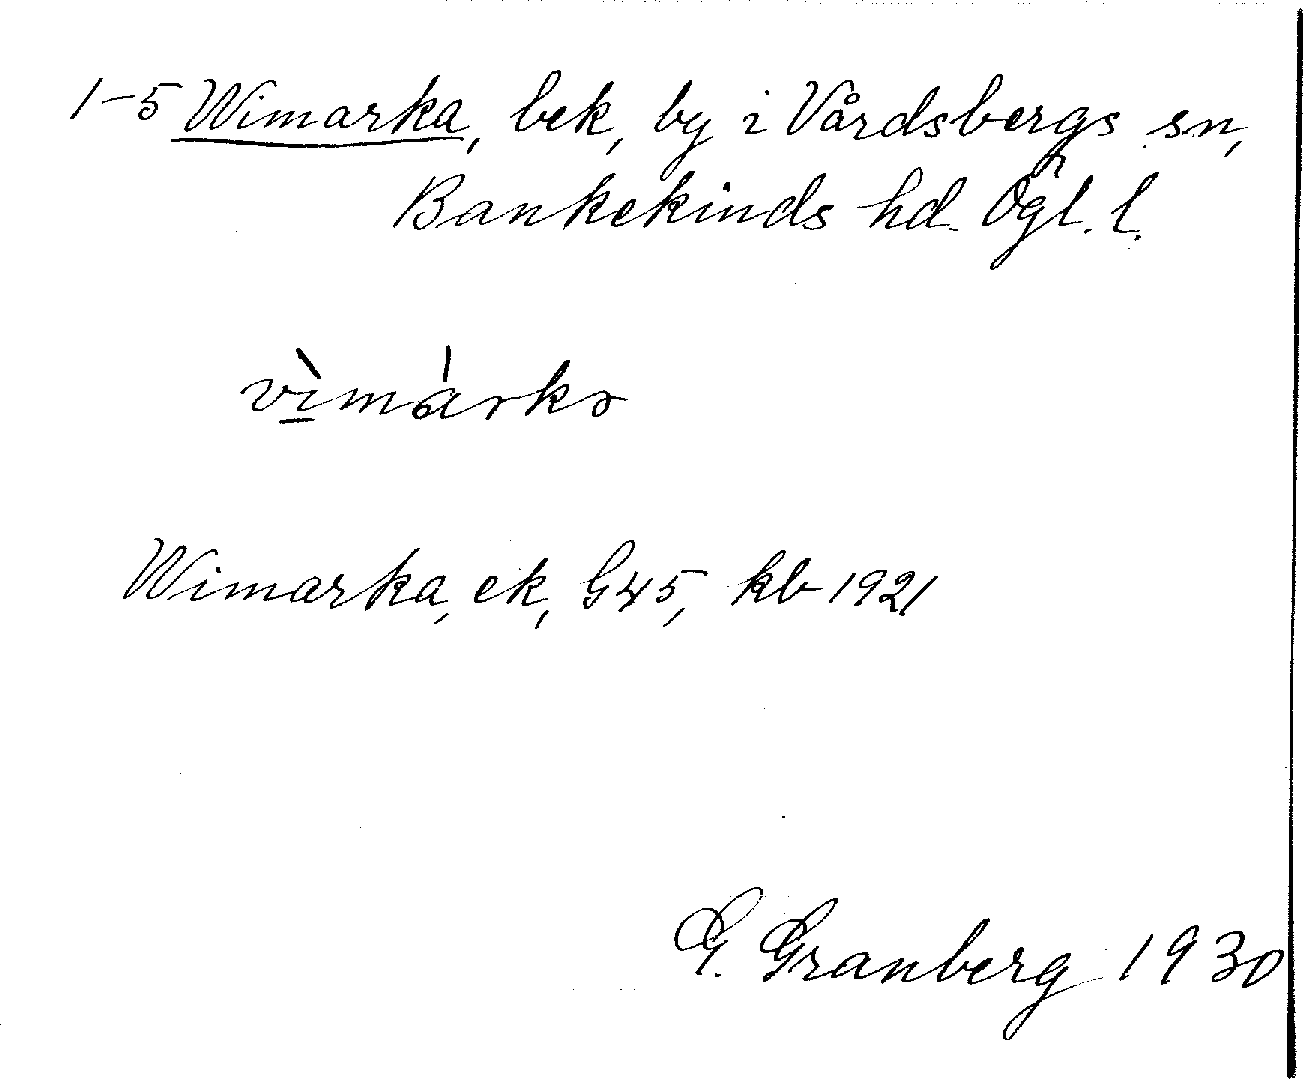 1-5 Wimarka, bek, by i Vårdsbergs sn,
Bankekinds hd. Ögl. l.
vìmárkə
Wimarka, ek, G45, kb 1921
G. Granberg 1930